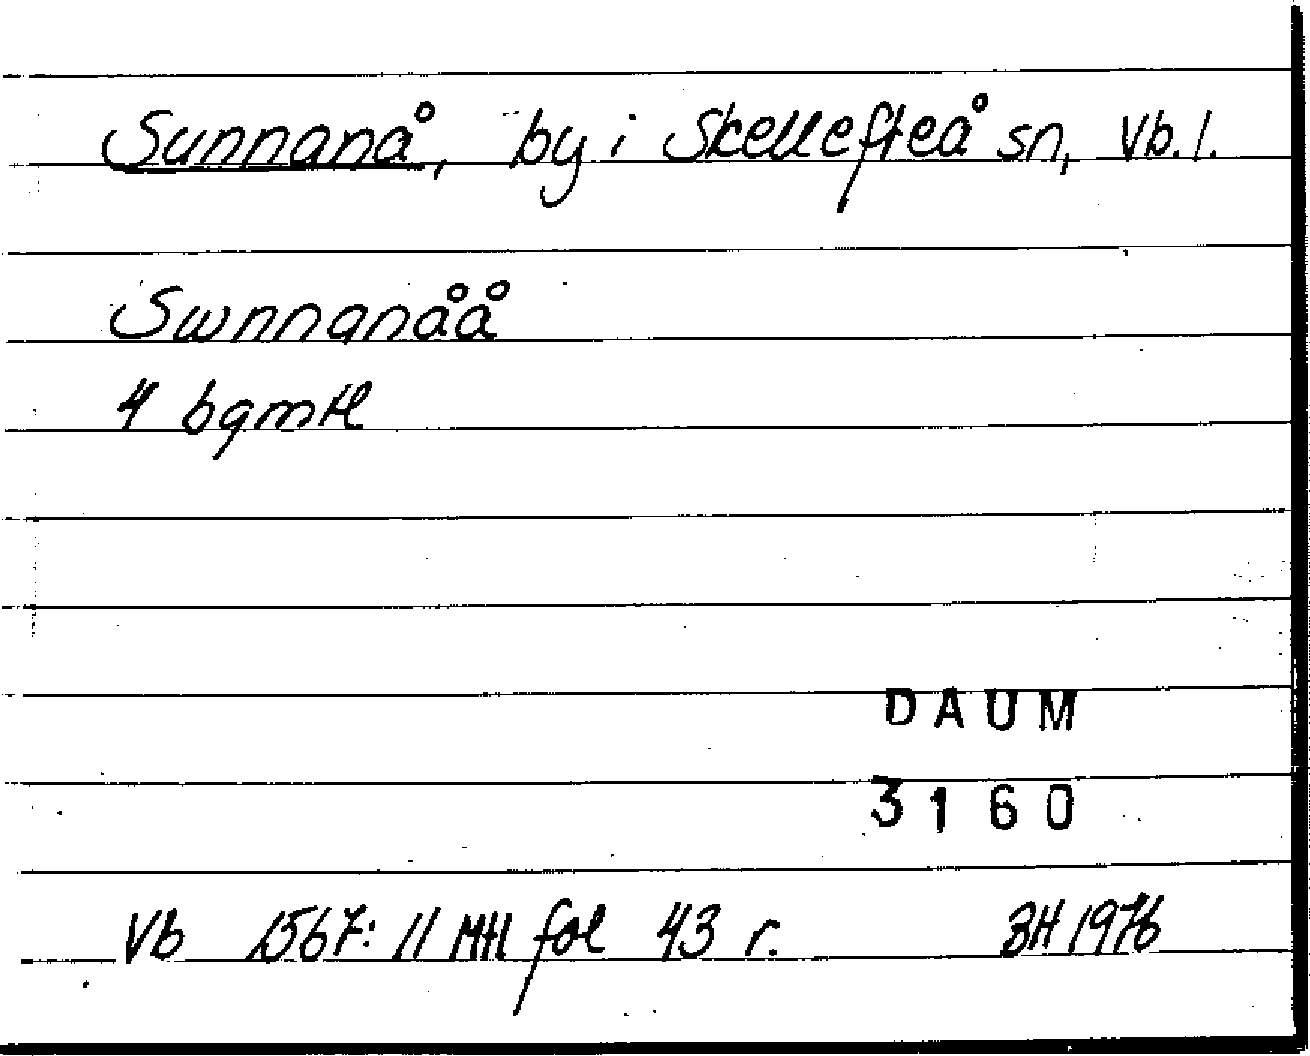 Sunnanå, by i Skellefteå sn, Vb. l.
Swnnanåå
4 bgmtl
DAUM
3160
Vb 1567: 11 Mtl fol 43 r. BH 1976